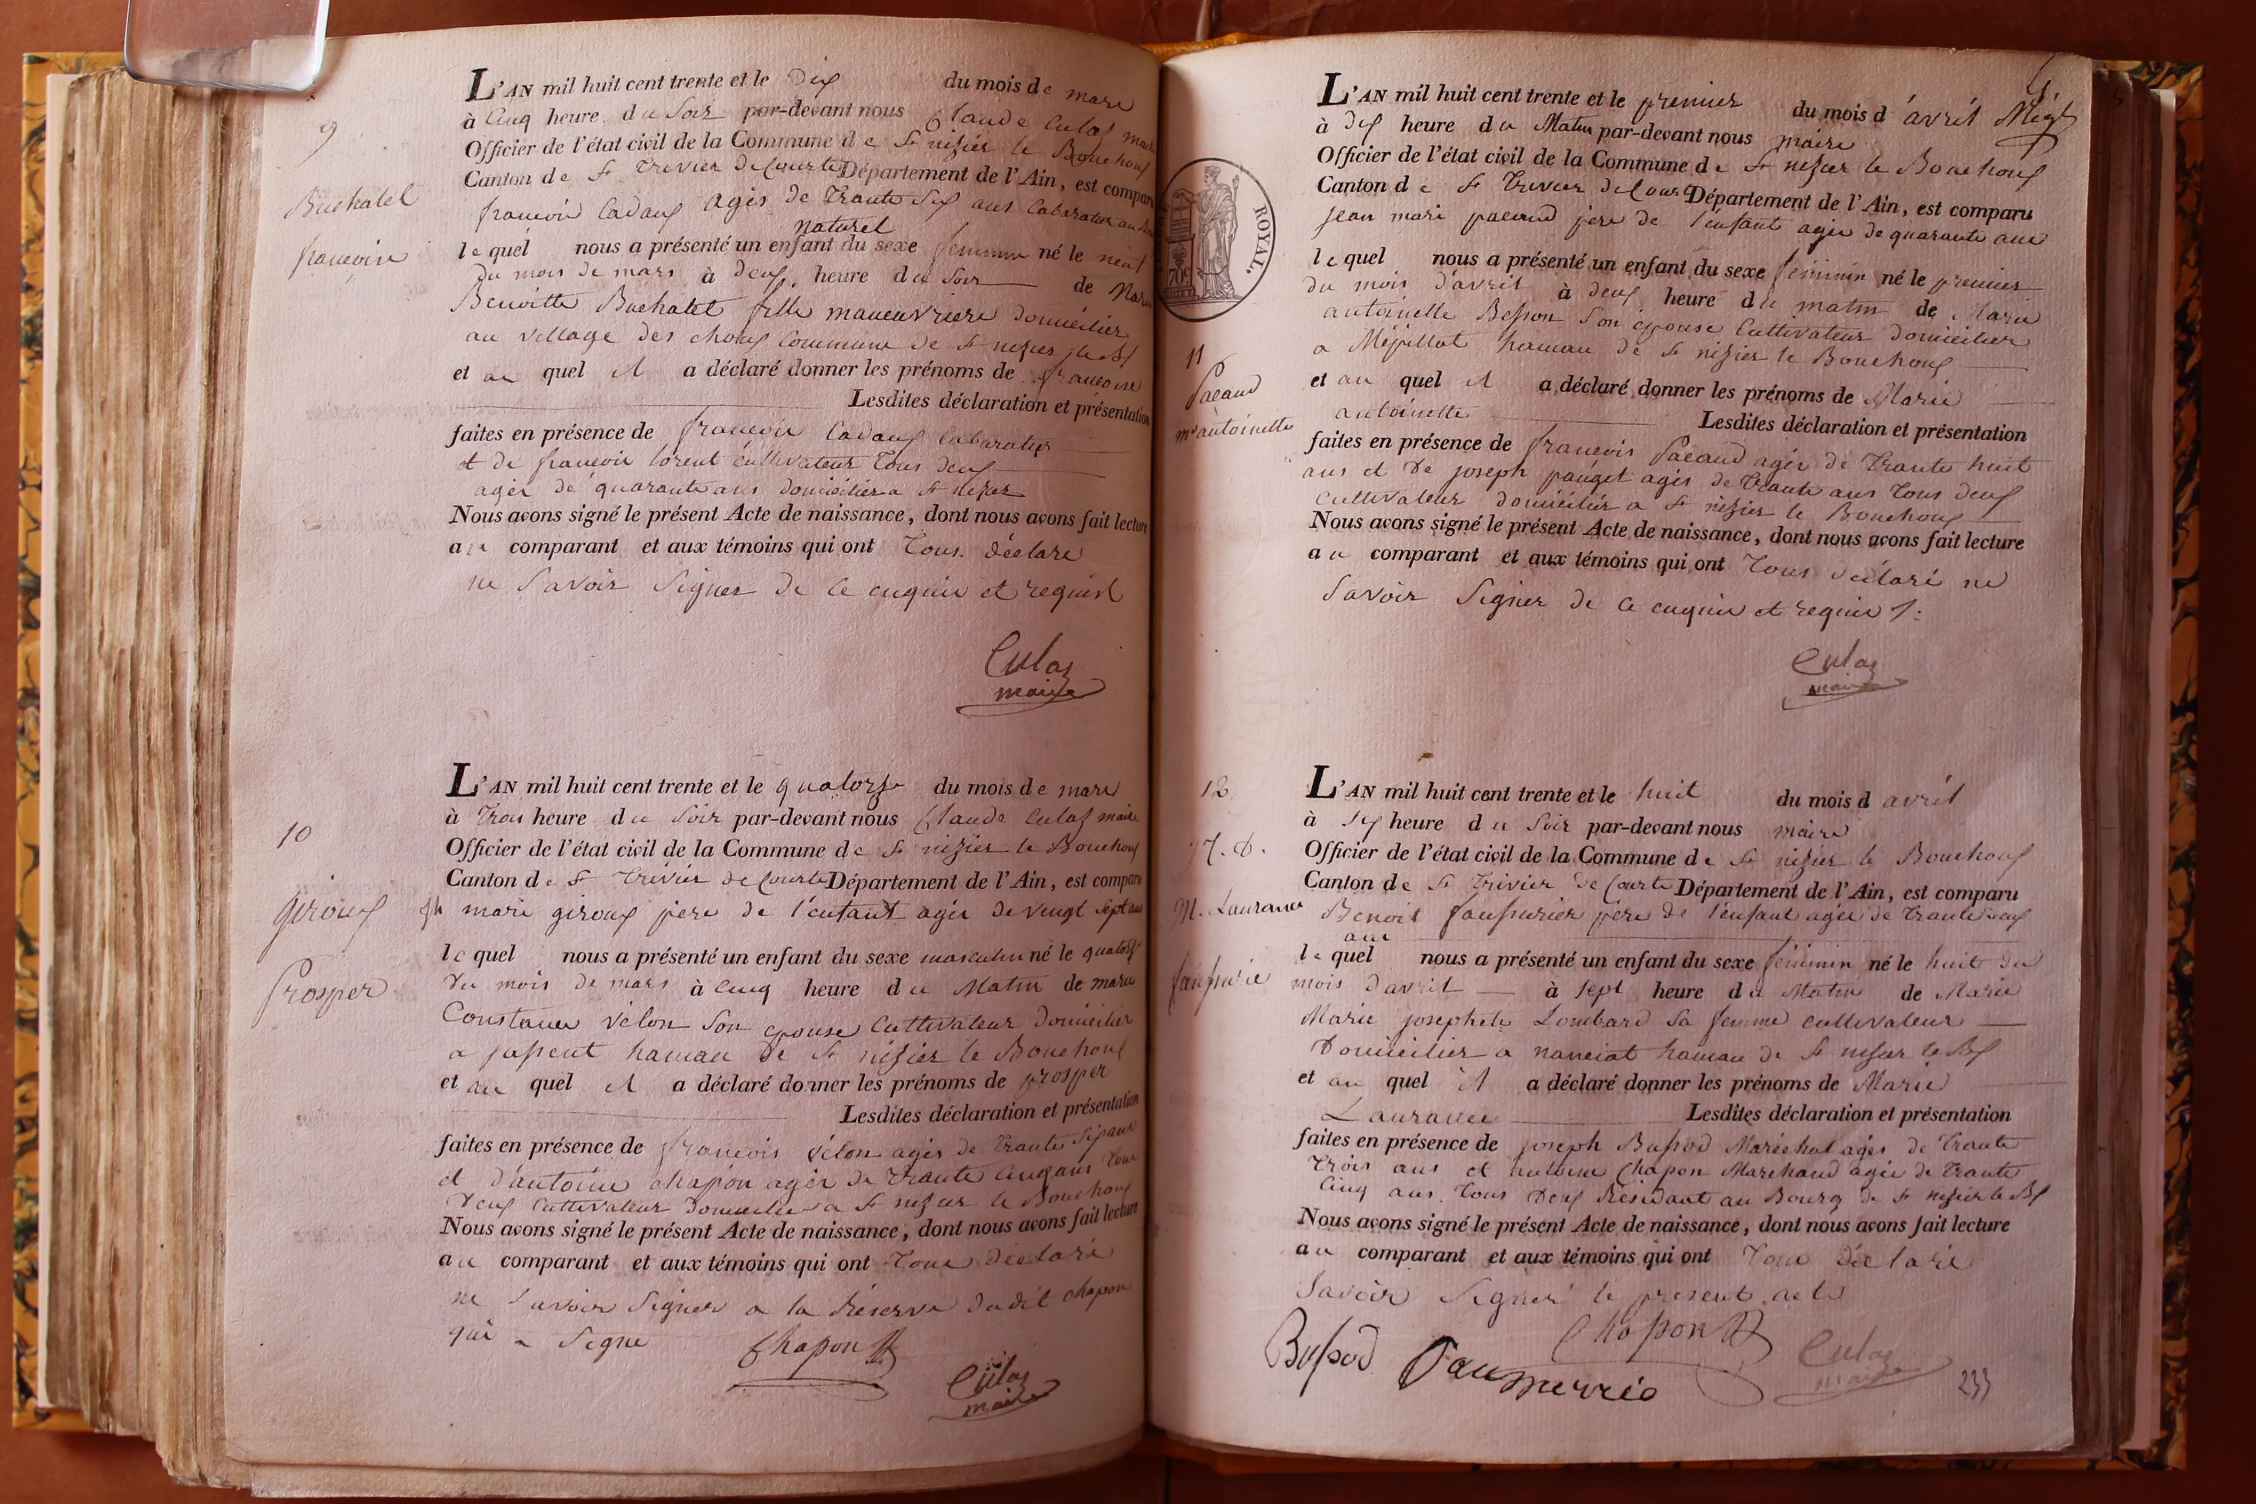 9
Buchalet
françoise
L'AN mil huit cent trente et le Dix du mois de mars
à Cinq heure du Soir par-devant nous Claude Culas maire
Officier de l'état civil de la Commune de St nizier le Bouchoux
Canton de St Trevier de Courte Département de l'Ain, est comparu
françois Cadoux agés de Trante Six ans Cabaratier au
naturel
le quel nous a présenté un enfant du sexe feminin né le neuf
du mois de mars à deux heure du Soir de Marie
Benoitte Buchalet fille maneuvriere domicilier
au village des choux Commune de St nizier le Bf
et au quel il a déclaré donner les prénoms de françoise
Lesdites déclaration et présentation
faites en présence de françois Cadoux Cabaratier
et de françois lorent cultivateur Tous deux
agés de quarante ans domicilier a St nizier
Nous avons signé le présent Acte de naissance, dont nous avons fait lecture
au comparant et aux témoins qui ont Tous déclaré
ne Savoir Signer de ce enquis et requist
Culas
maire
10
giroux
Prosper
L'AN mil huit cent trente et le quatorze du mois de mars
à Trois heure du Soir par-devant nous Claude Culas maire
Officier de l'état civil de la Commune de St nizier le Bouchoux
Canton de St Trevier de Courte Département de l'Ain, est comparu
jh marie giroux pere de l'enfant agés de vengt Sept ans
le quel nous a présenté un enfant du sexe masculin né le quatorze
du mois de mars à Cinq heure du Matin de marie
Constance vélon Son epouse Cultivateur domicilier
a hamau de St nizier le Bouchoux
et au quel il a déclaré donner les prénoms de prosper
Lesdites déclaration et présentation
faites en présence de françois vélon agés de Trante Sipans
et d'antoine chapon agés de Trante Cinq ans Tous
deux Cultivateur domicilier a St nizier le Bouchoux
Nous avons signé le présent Acte de naissance, dont nous avons fait lecture
au comparant et aux témoins qui ont Tous déclaré
ne Savoir Signer a la Réserve dudit chapon
qui a Signe
Chapon
Culas
maire
ROYAL.
11
Pacaud
mie antoinette
L'AN mil huit cent trente et le premier du mois d'avril
à dix heure du Matin par-devant nous maire
Officier de l'état civil de la Commune de St nizier le Bouchoux
Canton de St Trivier de Courte Département de l'Ain, est comparu
jean marie pacaud pere de l'enfant agés de quarante ans
le quel nous a présenté un enfant du sexe feminin né le premier
du mois d'avril à deux heure du matin de Marie
antoinette Besson Son épouse Cultivateur domicilier
a Méjillat hamau de St nizier le Bouchoux
et au quel il a déclaré donner les prénoms de Marie
antoinette Lesdites déclaration et présentation
faites en présence de françois Pacaud agés de Trante huit
ans et de joseph pauget agés de Trante ans Tous deux
Cultivateur domicilier a St nizier le Bouchoux
Nous avons signé le présent Acte de naissance, dont nous avons fait lecture
au comparant et aux témoins qui ont Tous déclaré ne
Savoir Signer de ce enquis et requis
Culas
maire
12
M. Laurance
L'AN mil huit cent trente et le huit du mois d avril
à Six heure du Soir par-devant nous maire
Officier de l'état civil de la Commune de St nizier le Bouchoux
Canton de St Trivier de Courte Département de l'Ain, est comparu
Benoit pere de l'enfant agés de Trante deux
ans
le quel nous a présenté un enfant du sexe féminin né le huit du
mois d'avril à sept heure du Matin de Marie
Marie josephete Lombard Sa femme cultivateur
Domicilier a nanciat hamau de St nizier le Bf
et au quel il a déclaré donner les prénoms de Marie
Laurance Lesdites déclaration et présentation
faites en présence de joseph Bussod Maréchal agés de Trante
Trois ans et antoine Chapon Marchand agés de Trante
Cinq ans Tous Deux Résidant au Bourg de St nizier le Bf
Nous avons signé le présent Acte de naissance, dont nous avons fait lecture
au comparant et aux témoins qui ont Tous déclaré
Savoir Signer le present acte
Bussod
Chapon
Culas
maire
233